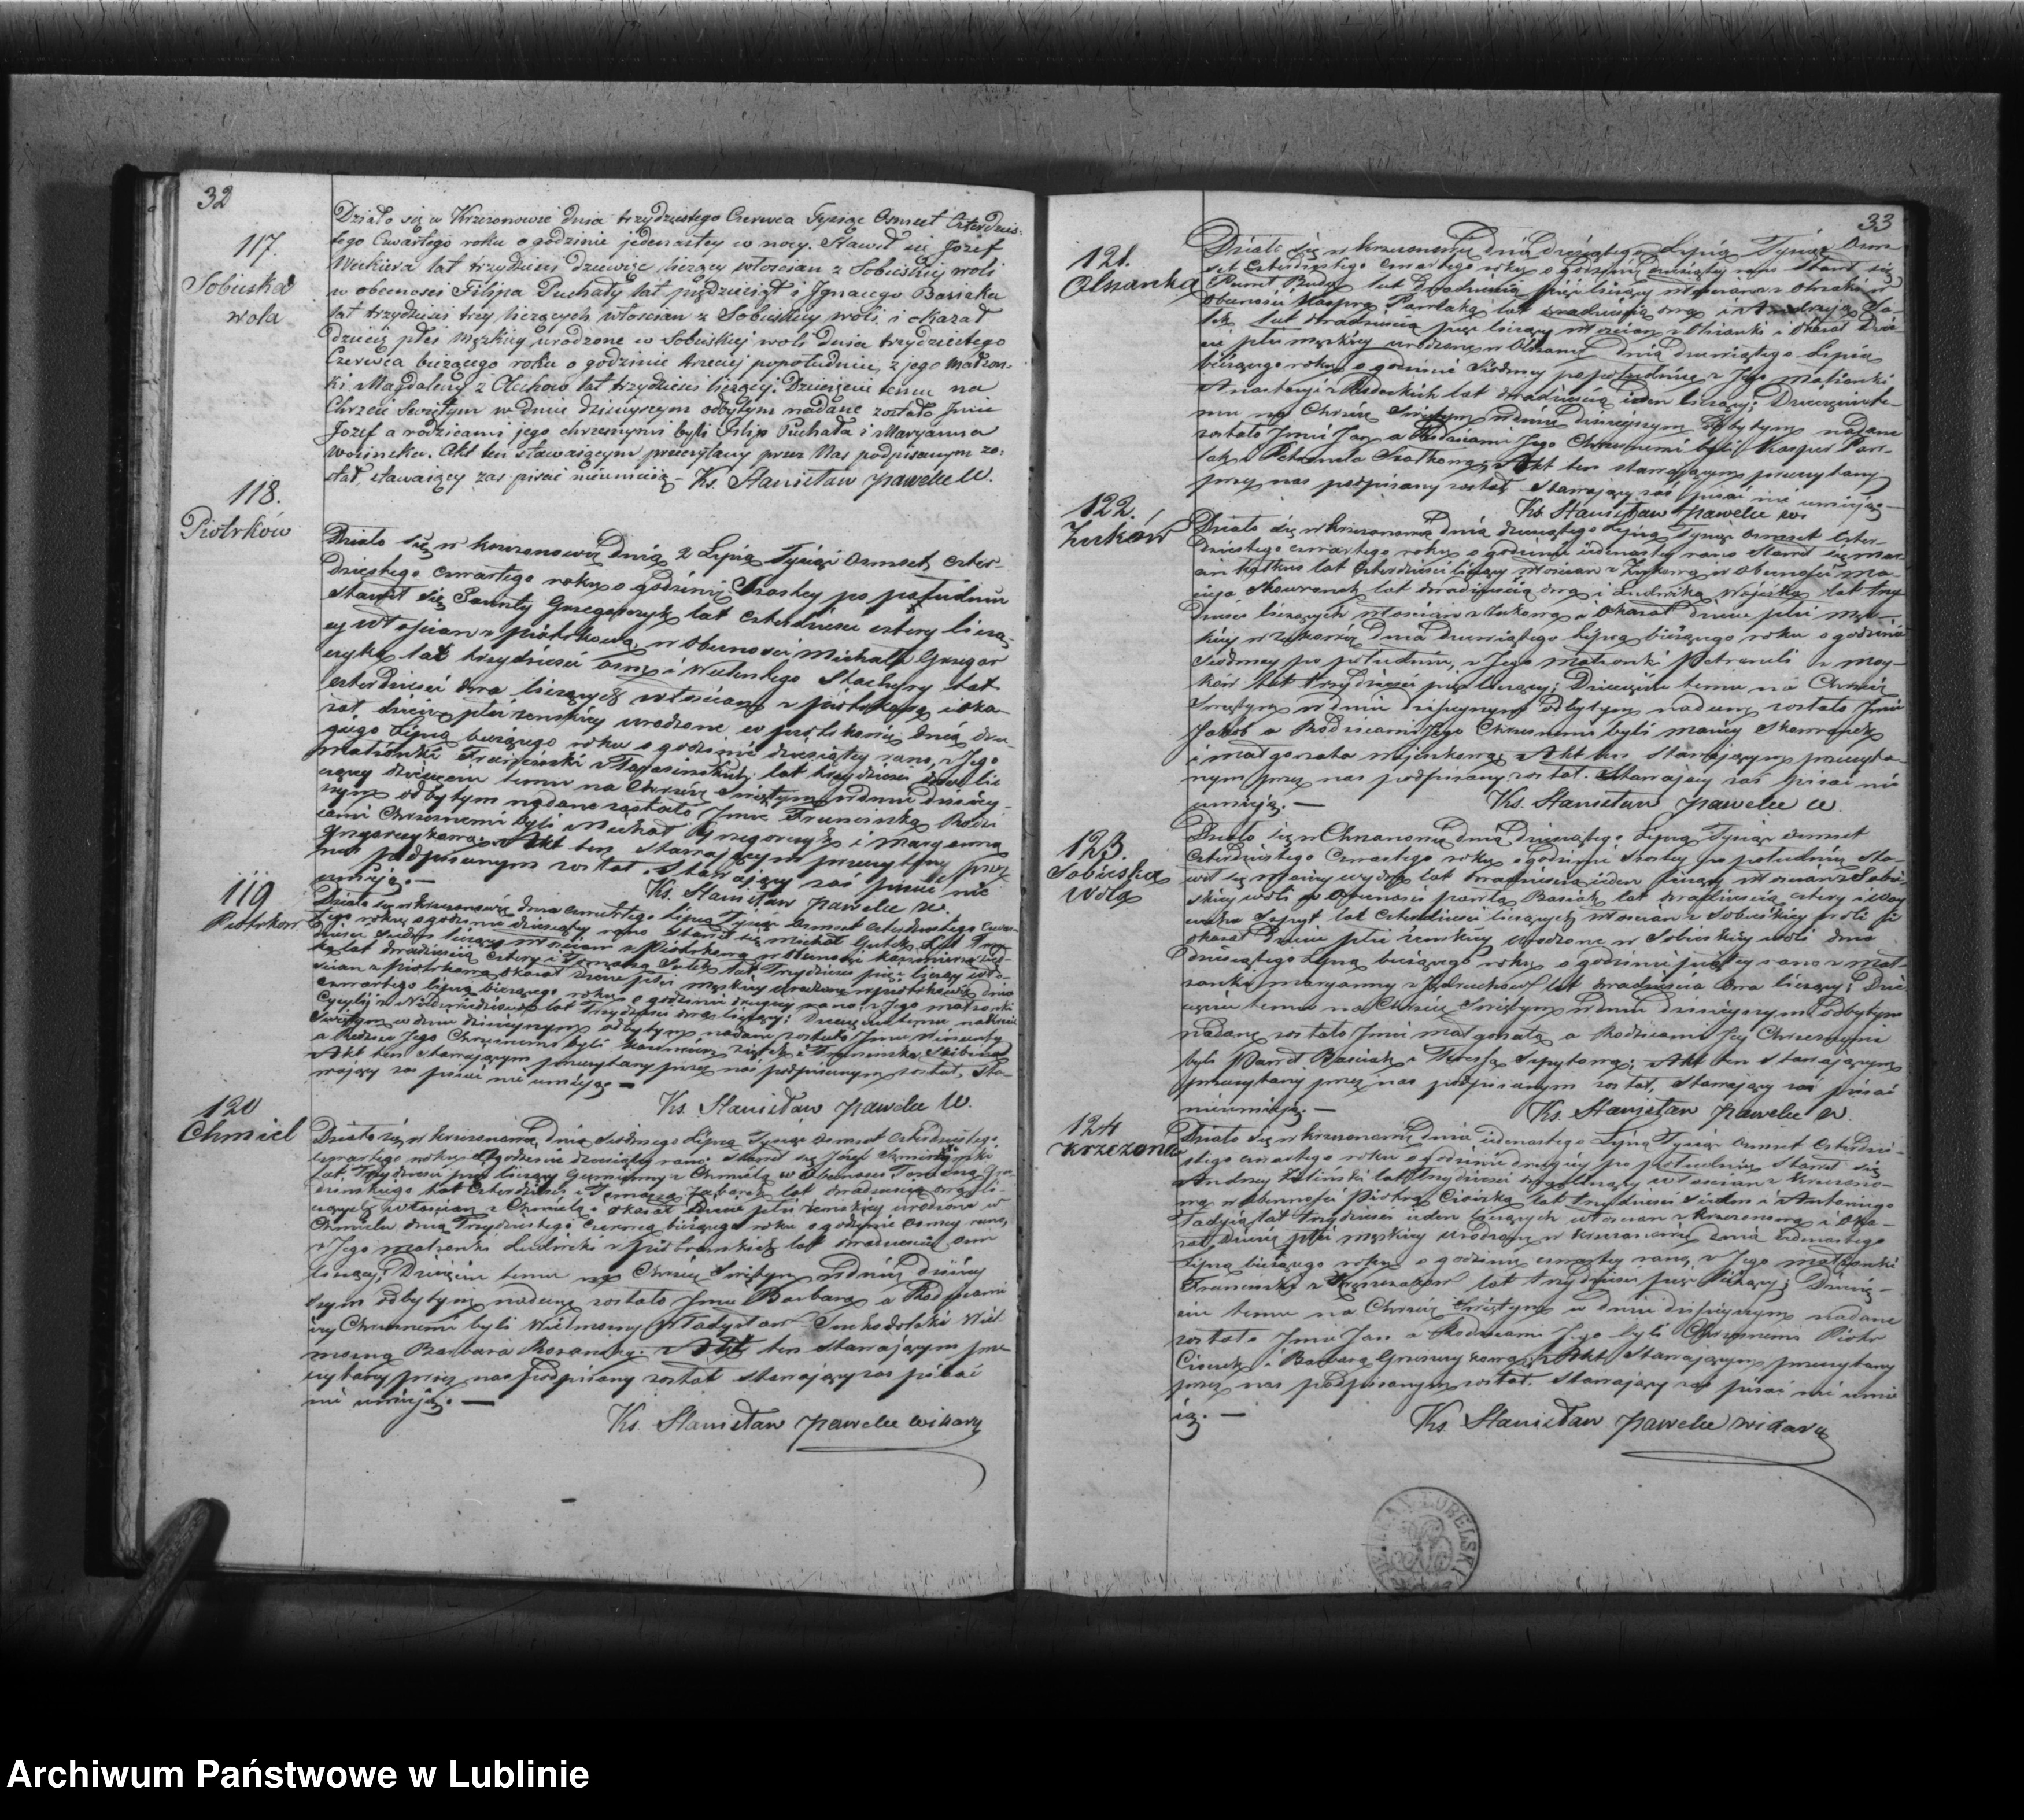 32
117.
Sobieska
wola
Działo się w Krzczonowie dnia trzydziestego Czerwca Tysiąc Osmset Czterdzies-
tego Czwartego roku o godzinie jedenastey w nocy. Stawił się Józef
lat trzydzieści dziewięć liczący włościan z Sobieskiej woli
w obecności Filipa Puchały lat pięćdziesiąt i Ignacego Basiaka
lat trzydzieści trzy liczących włościan z Sobieskiey woli, i okazał
dziecię płci męzkiey urodzone w Sobieskiej woli dnia trzydziestego
Czerwca bieżącego roku o godzinie trzeciej popołudniu, z jego małżon-
ki Magdaleny z lat trzydzieści liczącej. Dziecięciu temu na
Chrzcie Swiętym w dniu dzisieyszym odbytym nadane zostało Jmie
Jozef a rodzicami jego chrzesnymi byli Filip Puchała i Maryanna
Akt ten stawaiącym przeczytany przez Nas podpisanym zo-
stał, stawaiący zas pisać nieumieią - Ks. Stanisław Pawelec W.
118.
Piotrków
Działo się w Krzczonowie dnia 2 Lipca Tysiąc osmset czter-
dziestego czwartego roku o godzinie szostey po południu
Stawił się Grzegorczyk lat czterdzieści cztery liczą-
cy włościan z Piotrkowa, w obecności Michała Grzegor
czyka lat trzydzieści osm i Walentego Stachyry lat
czterdzieści dwa liczących włościan z Piotrkowa i oka-
zał dziecię płci żenskiey urodzone w Piotrkowie dnia dru-
giego Lipca bieżącego roku o godzinie dziesiątey rano, z Jego
małżonki Franciszki z lat trzydzieści dwa li
czącey dziecięciu temu na Chrzcie Swiętym w dniu dzisiey-
szym odbytym nadane zostało Jmie Franciszka Rodzi
cami Chrzesnemi byli Michał Grzegorczyk i Maryanna
Grzegorczykowa. Akt ten Stawaiącym przeczytany przez
nas podpisanym został, Stawaiący zaś pisać nie
umieią. - Ks. Stanisław Pawelec W.
119
Piotrków
Działo się w Krzczonowie dnia czwartego Lipca Tysiąc Osmset czterdziestego czwar-
tego roku o godzinie dziesiątey rano Stawił się Michał Gutek lat Trzy-
dzieści siedm liczący włościan z Piotrkowa w obecności Kazimierza
lat dwadzieścia cztery i Tomasza Gutka lat Trzydzieści pięć liczący wło-
ścian z Piotrkowa okazał dziecię płci męzkiey urodzone w Piotrkowie dnia
czwartego Lipca bieżącego roku o godzinie drugiey rano z Jego małżonki
Cycylij z lat trzydzieści dwa liczącey; Dziecięciu temu na Chrzcie
Swiętym w dniu dzisieyszym odbytym nadane zostało Jmie Wincenty
a Rodzice Jego Chrzesnemi byli Kazimierz i Franciszka
Akt ten Stawaiącym przeczytany przez nas podpisanym został, Sta-
waiący zas pisać nie umieią -
Ks. Stanisław Pawelec W.
120
Chmiel
Działo się w Krzczonowie dnia siodmego Lipca Tysiąc Osmset czterdziestego
czwartego roku o godzinie dziesiątey rano Stawił się Józef
lat Trzydzieści pięć liczący z Chmiela w obecności Tomasza
lat czterdzieści i Tomasza lat dwadzieścia
liczących włościan z Chmiela i okazał Dziecię płci żenskiey urodzone w
Chmielu dnia Trzydziestego Czerwca bieżącego roku o godzinie osmey rano,
z Jego małżonki Ludwiki z lat dwadzieścia osm
liczącey; Dziecięciu temu na Chrzcie Swiętym w dniu dzisiey
szym odbytym nadane zostało Jmie Barbara a Rodzicami
iey Chrzesnemi byli Wielmożny Władysław Suchodolski Wiel
można Barbara Akt ten Stawaiącym prze
czytany przez nas podpisany został Stawaiący zas pisać
nie umieią. -
Ks. Stanisław Pawelec wikary
33
121.
Olszanka
Działo się w Krzczonowie dnia dziesiątego Lipca Tysiąc Osm-
set Czterdziestego czwartego roku o godzinie rano Stawił się
Paweł lat dwadzieścia pięć liczący włościan z Olszanki w
obecności Kaspra Pawlaka lat dwadzieścia dwa i Andrzeja
lat dwadzieścia pięć liczący włościan z Olszanki i okazał Dzie-
cię płci męzkiey urodzone w Olszance dnia dziewiątego Lipca
bieżącego roku o godzinie siodmey popołudniu z Jego małżonki
Anastazyi z lat dwadzieścia ieden liczącey; Dziecięciu te-
mu na Chrzcie Swiętym w dniu dzisieyszym odbytym nadane
zostało Jmie Jan a Rodzicami Jego Chrzesnemi byli Kasper Paw-
lak i Petronela Akt ten stawaiącym przeczytany
przez nas podpisany został Stawaiący zaś pisać nie umieią -
Ks. Stanisław Pawelec W.
122.
Żuków
Działo się w Krzczonowie dnia dziesiątego Lipca Tysiąc osmset czter-
dziestego czwartego roku o godzinie iedenastey rano Stawił się Mar-
cin lat czterdzieści liczący włościan z Żukowa w obecności Ma-
cieja Skowronek lat dwadzieścia dwa i Ludwika Wojcika lat trzy
dzieści liczących włościan z Żukowa i okazał dziecię płci męz-
kiey w Żukowie dnia dziewiątego Lipca bieżącego roku o godzinie
siodmey po południu, z Jego małżonki Petroneli z
lat Trzydzieści pięć liczącey; Dziecięciu temu na Chrzcie
Swiętym w dniu dzisieyszym odbytym nadane zostało Jmie
Jakob a Rodzicami Jego Chrzesnemi byli Maciej Skowronek
i Małgorzata Wojcikowa, Akt ten Stawaiącym przeczyta-
nym przez nas podpisany został. Stawaiący zaś pisać nie
umieią. - Ks. Stanisław Pawelec W.
123.
Sobieska
Wola
Działo się w Krzczonowie dnia dziesiątego Lipca Tysiąc osmset
Czterdziestego Czwartego roku o godzinie szostey po południu Sta-
wił się Maciey lat dwadzieścia ieden liczący włościan z Sobie-
skiey woli w obecności Pawła Basiak lat dwadzieścia cztery i Woy
ciecha lat czterdzieści liczących włościan z Sobieskiey woli i
okazał Dziecię płci żenskiey urodzone w Sobieskiey woli dnia
dziesiątego Lipca bieżącego roku o godzinie piątey rano z Mał-
żonki Maryanny z lat dwadzieścia dwa liczącey; Dzie-
cięciu temu na Chrzcie Swiętym w dniu dzisieyszym odbytym
nadane zostało Jmie Małgorzata a Rodzicami Jey Chrzesnymi
byli Paweł Basiak i Teressa Akt ten Stawaiącym
przeczytany przez nas podpisanym został, Stawaiący zaś pisać
nieumieią. - Ks. Stanisław Pawelec W.
124
Krzczonów
Działo się w Krzczonowie dnia iedenastego Lipca Tysiąc osmset Czterdzie-
stego czwartego roku o godzinie drugiey po południu Stawił się
Andrzey lat Trzydzieści liczący włościan z Krzczono-
wa w obecności Piotra lat trzydzieści siedm i Antoniego
lat trzydzieści ieden liczących włościan z Krzczonowa i oka-
zał dziecię płci męzkiey urodzone w Krzczonowie dnia iedenastego
Lipca bieżącego roku o godzinie czwartey rano, z Jego małżonki
Franciszki z lat Trzydzieści pięć liczącey; Dziecię-
ciu temu na Chrzcie Swiętym w dniu dzisieyszym nadane
zostało Jmie Jan a Rodzicami Jego byli Chrzesnemi Piotr
i Barbara Akt Stawaiącym przeczytany
przez nas podpisanym został. Stawaiący zaś pisać nie umie
ią. - Ks. Stanisław Pawelec wikary
Archiwum Państwowe w Lublinie